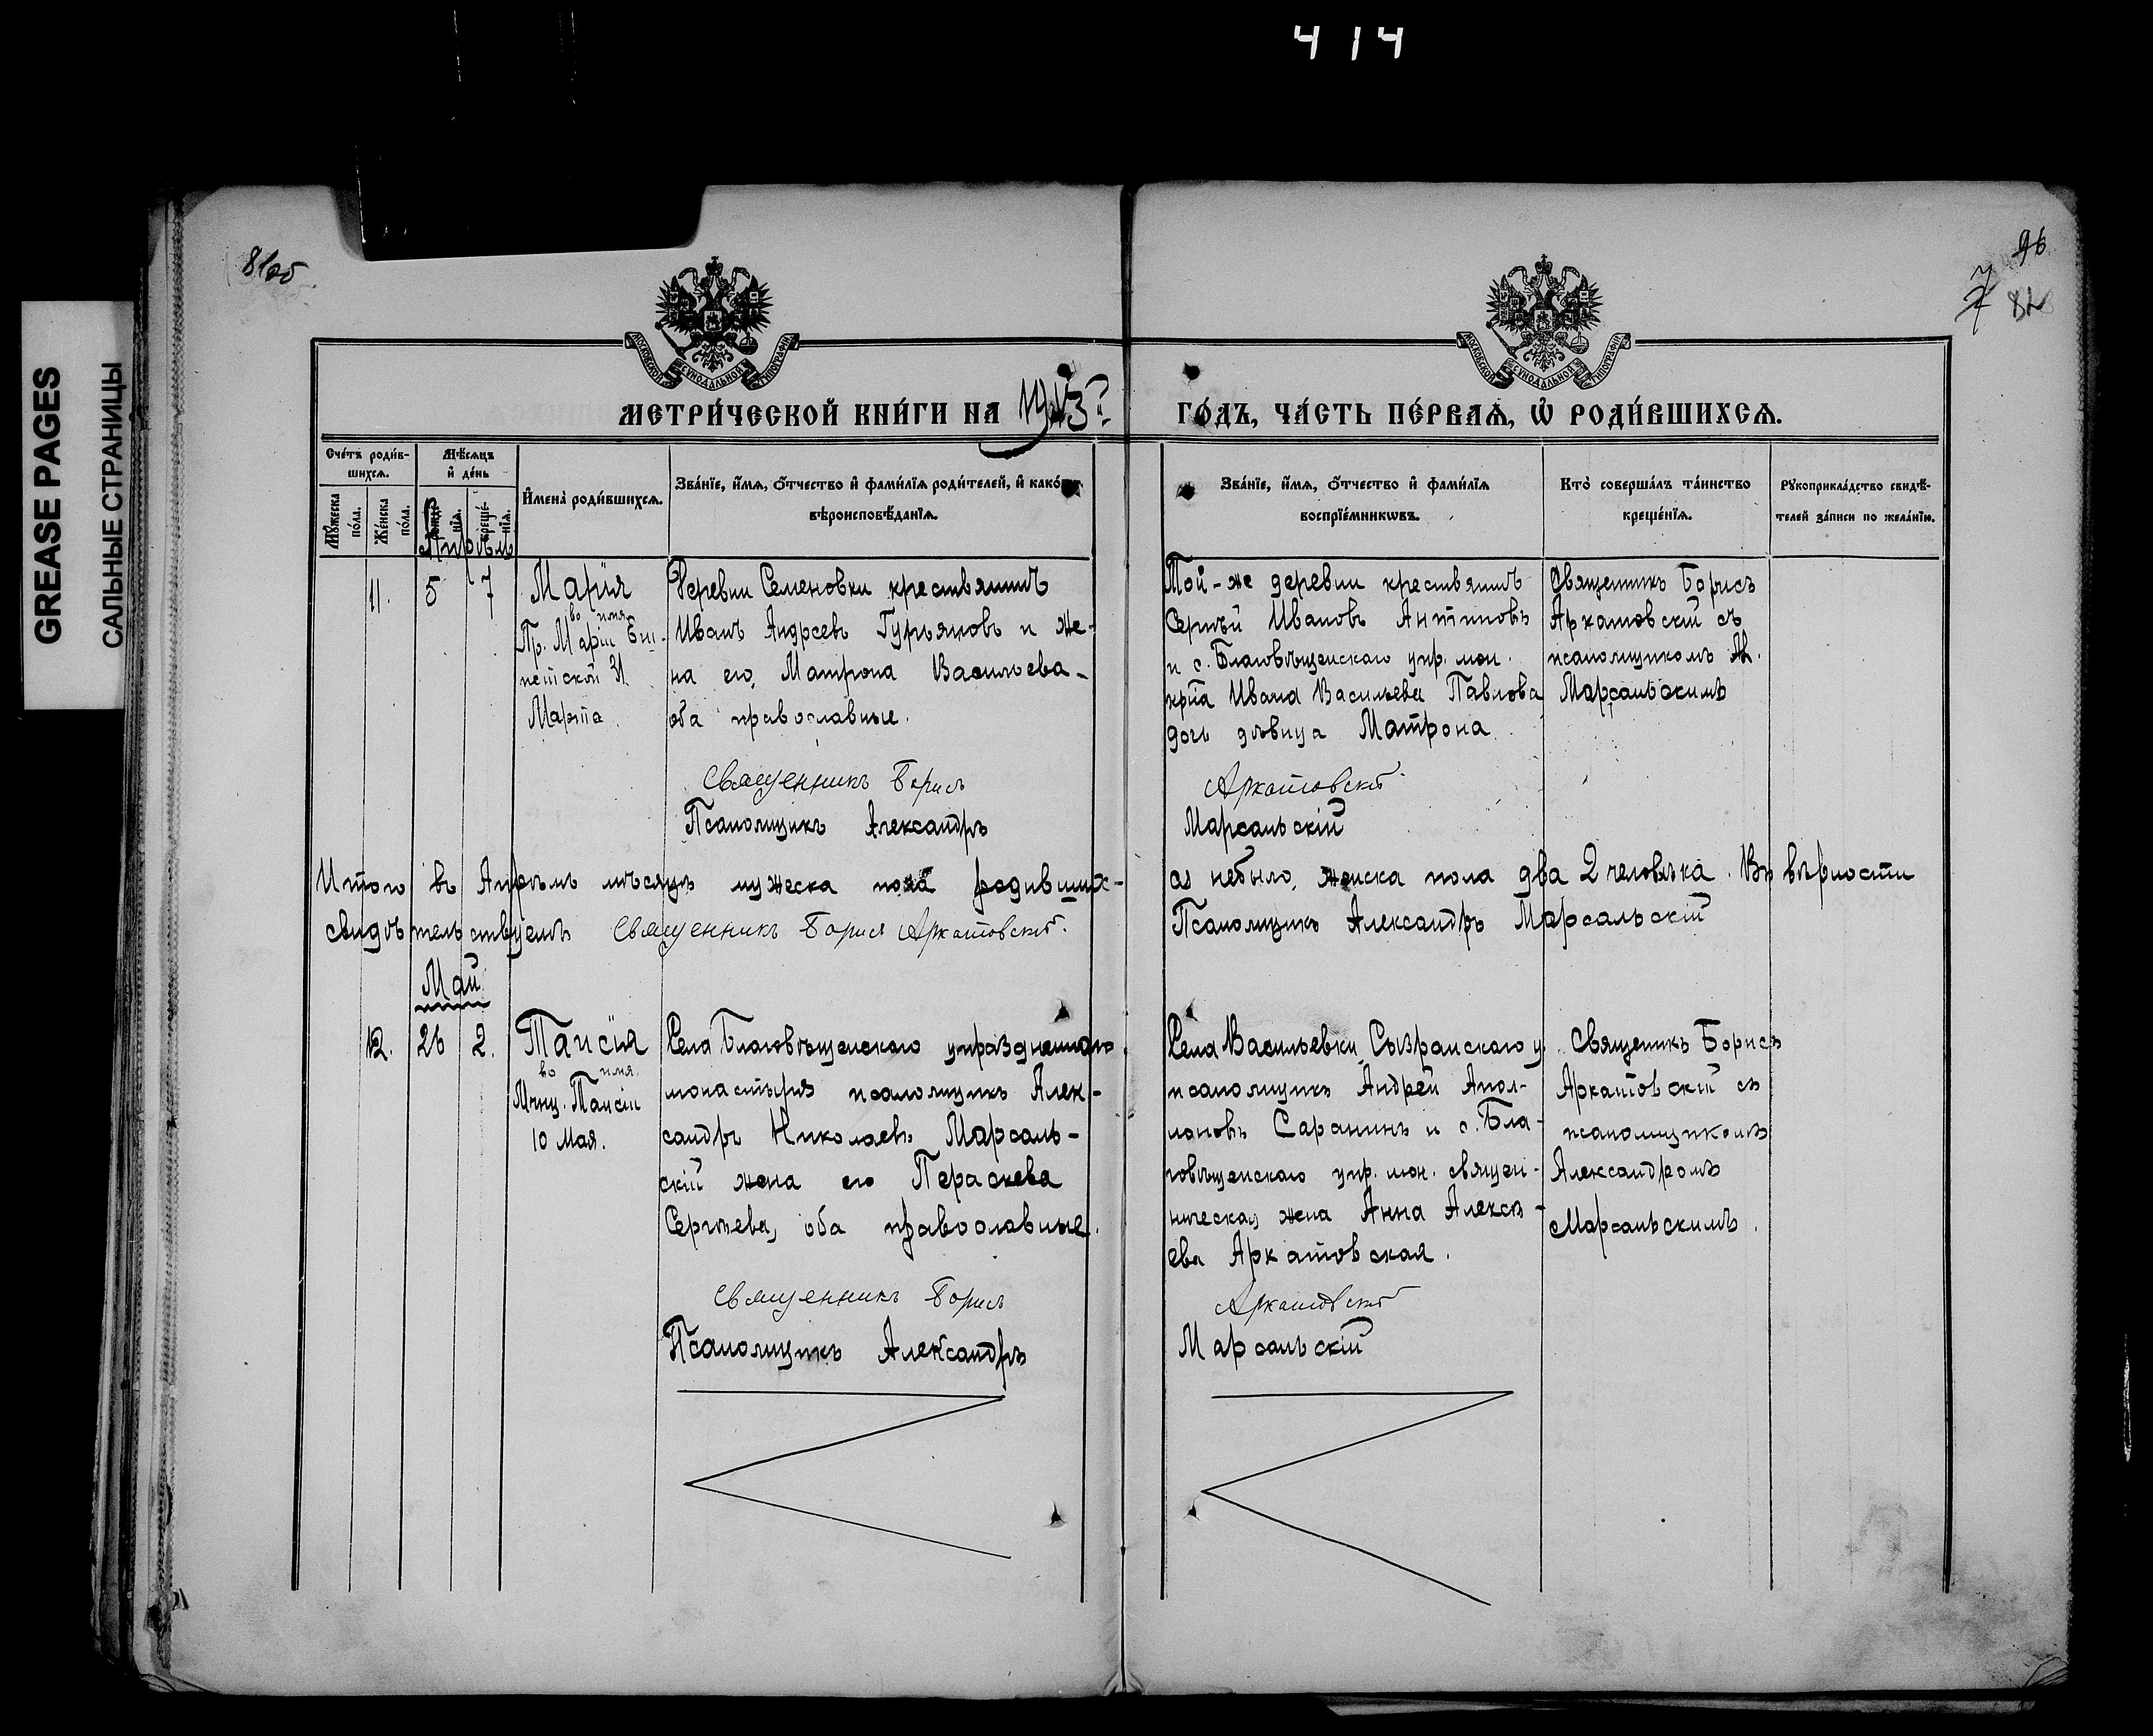 4 14
GREASE PAGES
САЛЬНЫЕ СТРАНИЦЫ
81об
96
7
82
МОСКОВСКОЙ СУНОДАЛЬНОЙ ТИПОГРАФІИ
МОСКОВСКОЙ СУНОДАЛЬНОЙ ТИПОГРАФІИ
МЕТРИ́ЧЕСКОЙ КНИ́ГИ НА 1913 г.
ГО́ДЪ, ЧА́СТЬ ПЕ́РВАѦ, Ѡ҆ РОДИ́ВШИХСѦ.
Сче́тъ роди́в-
шихсѧ.
Мꙋ́жеска по́ла.
Же́нска по́ла.
Мѣ́сѧцъ
и҆ де́нь
рожде́нїѧ.
креще́нїѧ.
И҆мена̀ роди́вшихсѧ.
Зва́нїе, и҆́мѧ, ѻ҆́тчество и҆ фами́лїѧ роди́телей, и҆ како́гѡ
вѣроисповѣ́данїѧ.
Зва́нїе, и҆́мѧ, ѻ҆́тчество и҆ фами́лїѧ
воспрїе́мникѡвъ.
Кто̀ соверша́лъ та́инство
креще́нїѧ.
Рꙋкоприкла́дство свидѣ́-
телей за́писи по жела́нїю.
Апрѣль
11.
5
7
Марія
во имя
Пр. Маріи Еги-
петской 1
Марта
Деревни Семеновки крестьянинъ
Иванъ Андреевъ Гурьяновъ и же-
на его, Матрона Васильева -
оба православные.
Той-же деревни крестьянинъ
Сергѣй Ивановъ Антиповъ
и с. Благовѣщенскаго упр. мон.
кр-на Ивана Васильева Павлова
дочь дѣвица Матрона
Священникъ Борисъ
Аркатовскій съ
псаломщикомъ Ал.
Марсальскимъ
Священникъ Борисъ Аркатовскій
Псаломщикъ Александръ Марсальскій
Итого въ Апрѣлѣ мѣсяцѣ мужеска пола родивших-
ся небыло, женска пола два 2 человѣка. Въ вѣрности
свидѣтельствуемъ Священникъ Борисъ Аркатовскій.
Псаломщикъ Александръ Марсальскій
Май
12.
26
2.
Таисія
во имя
Мчнц. Таисіи
10 Мая.
Села Благовѣщенскаго упраздненнаго
монастыря псаломщикъ Алек-
сандръ Николаевъ Марсаль-
скій жена его Пераскева
Сергѣева, оба православные.
Села Васильевки Сызранскаго у.
псаломщикъ Андрей Апол-
лоновъ Саранинъ и с. Бла-
говѣщенскаго упр. мон. священ-
ническая жена Анна Алексѣ-
ева Аркатовская.
Священникъ Борисъ
Аркатовскій съ
псаломщикомъ
Александромъ
Марсальскимъ.
Священникъ Борисъ Аркатовскій
Псаломщикъ Александръ Марсальскій